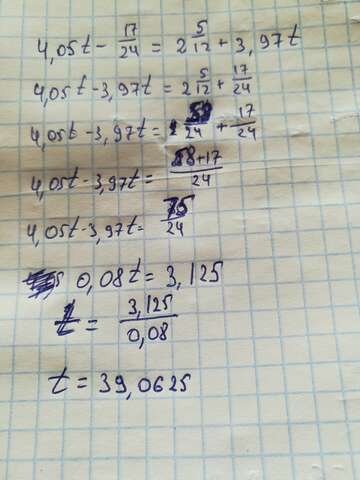 4,05t - 17/24 = 2 5/12 + 3,97t
4,05t - 3,97t = 2 5/12 + 17/24
4,05t - 3,97t = 58/24 + 17/24
4,05t - 3,97t = 58+17/24
4,05t - 3,97t = 75/24
0,08t = 3,125
t = 3,125/0,08
t = 39,0625